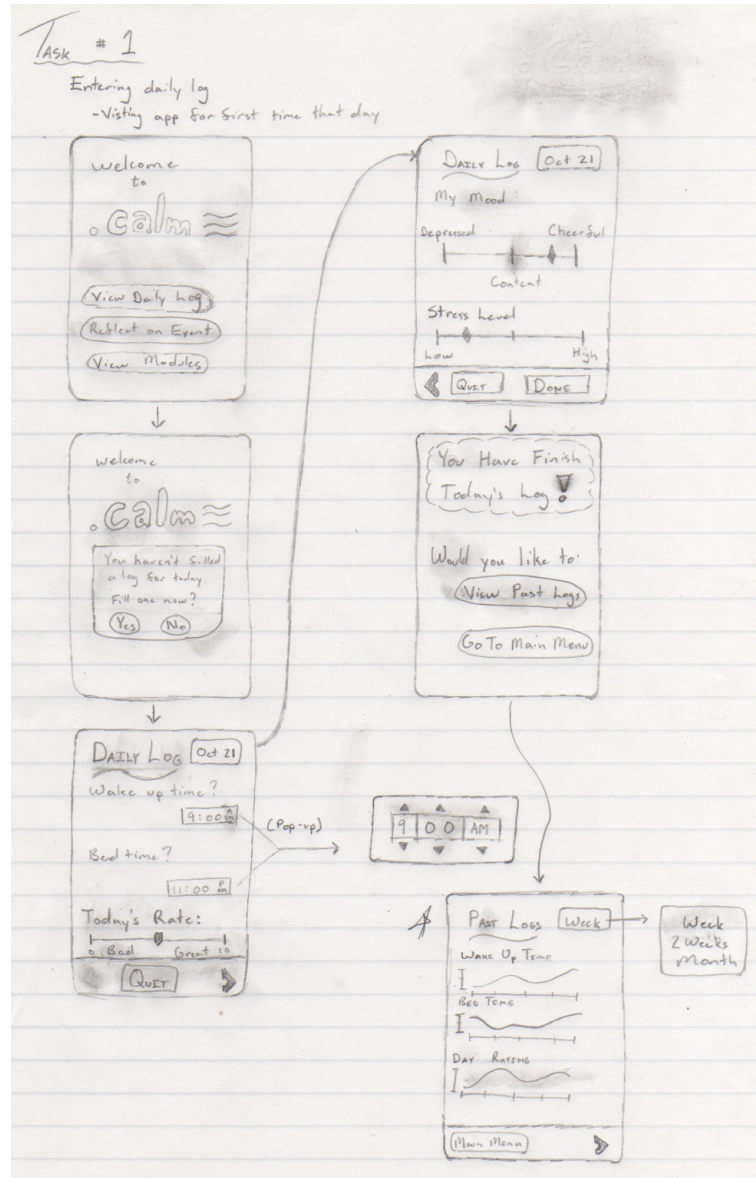 Task # 1
Entering daily log
-Visting app for first time that day
welcome
to
.calm
View Daily Log
Reflect on Event
View Modules
welcome
to
.calm
You haven't filled
a log for today.
Fill one now?
Yes No
DAILY LOG Oct 21
Wake up time?
9:00 AM
Bed time?
11:00 PM
Today's Rate:
0 Bad Great 10
QUIT
(Pop-up)
9 00 AM
DAILY LOG Oct 21
My Mood
Depressed Cheerful
Content
Stress Level
Low High
QUIT DONE
You Have Finish
Today's Log!
Would you like to:
View Past Logs
Go To Main Menu
PAST LOGS Week
WAKE UP TIME
BED TIME
DAY RATING
Main Menu
Week
2 Weeks
Month